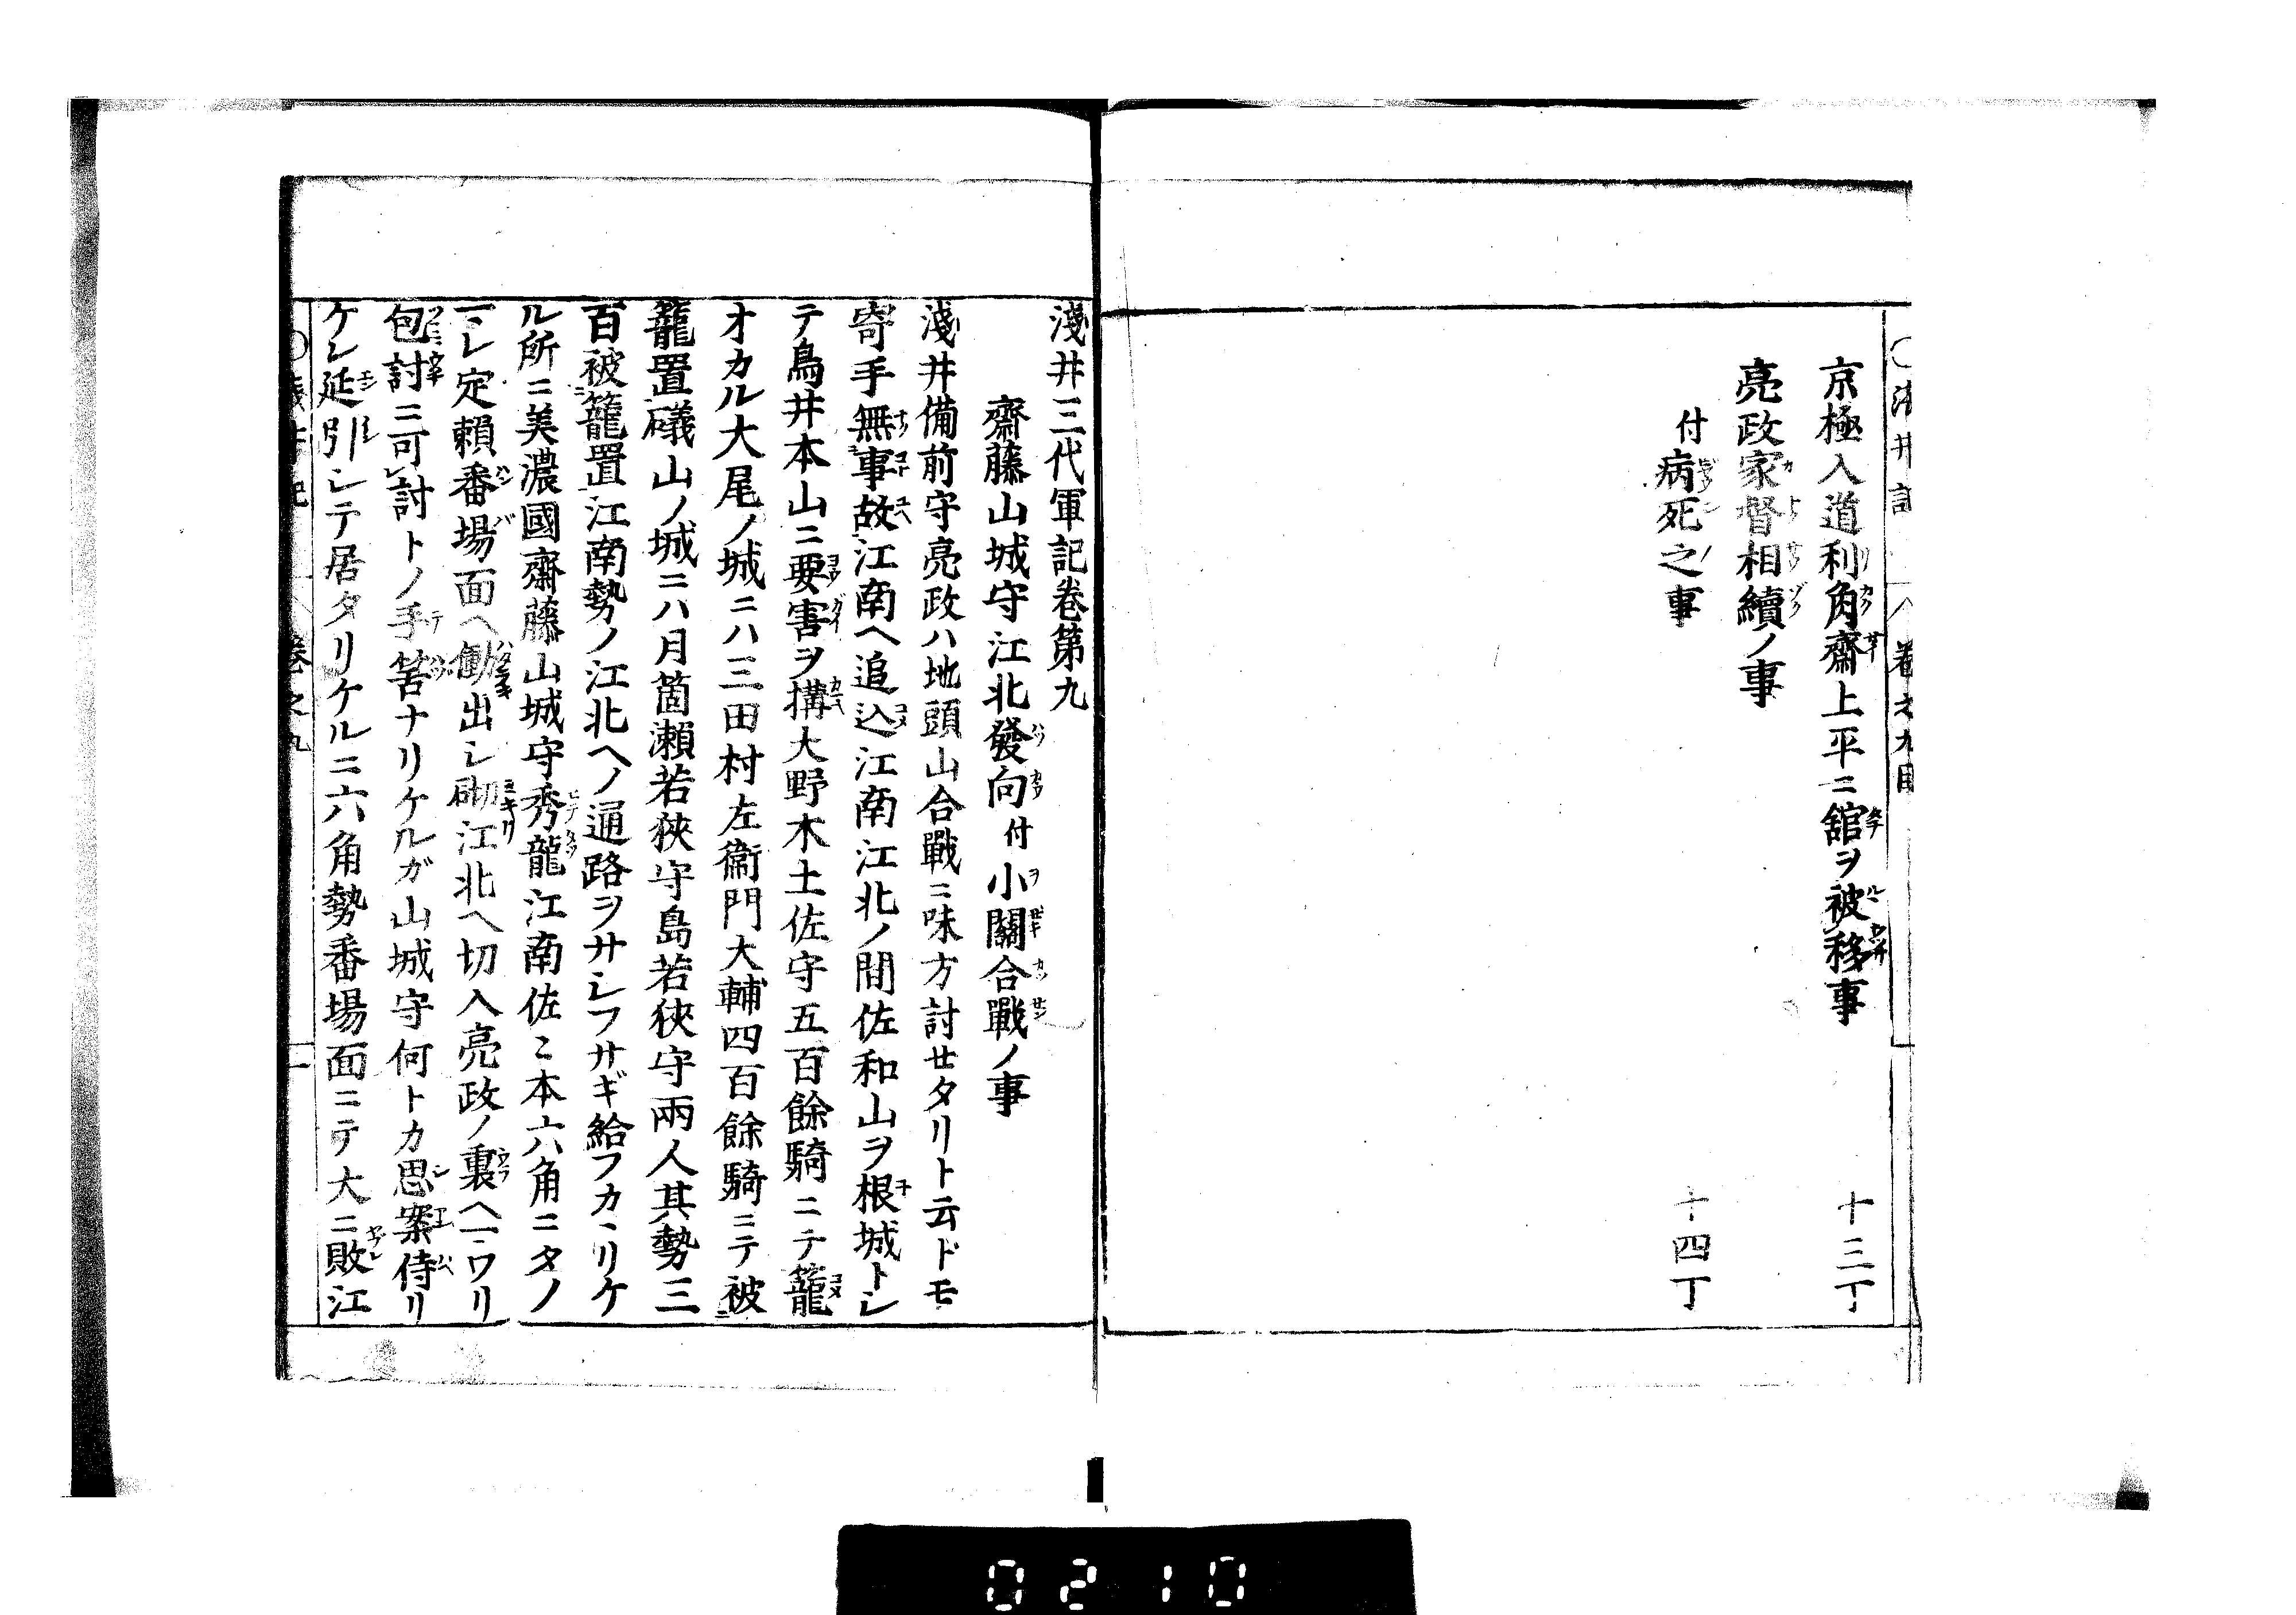 京極入道利角齋上平ニ舘ヲ被移事 十三丁
亮政家督相續ノ事
付病死之事 十四丁
淺井三代軍記卷第九
齋藤山城守江北發向付小關合戰ノ事
淺井備前守亮政ハ地頭山合戰ニ味方討セタリト云ドモ
寄手無事故江南ヘ追込江南江北ノ間佐和山ヲ根城トシ
テ鳥井本山ニ要害ヲ搆大野木土佐守五百餘騎ニテ籠
オカル大尾ノ城ニハ三田村左衞門大輔四百餘騎ニテ被
籠置礒山ノ城ニハ月箇瀬若狹守島若狹守兩人其勢三
百被籠置江南勢ノ江北ヘノ通路ヲサシフサギ給フカヽリケ
ル所ニ美濃國齋藤山城守秀龍江南佐々木六角ニタノ
マレ定頼番場面ヘ働出シ砌江北ヘ切入亮政ノ裏ヘマワリ
包討ニ可討トノ手筈ナリケルガ山城守何トカ思案侍リ
ケン延引シテ居タリケルニ六角勢番場面ニテ大ニ敗江
卷之九
一
0210